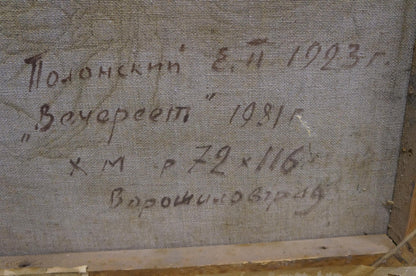 Полонский Е.П 1923 г.
„Вечереет" 1981 г
х м р 72 х 116
Ворошиловград